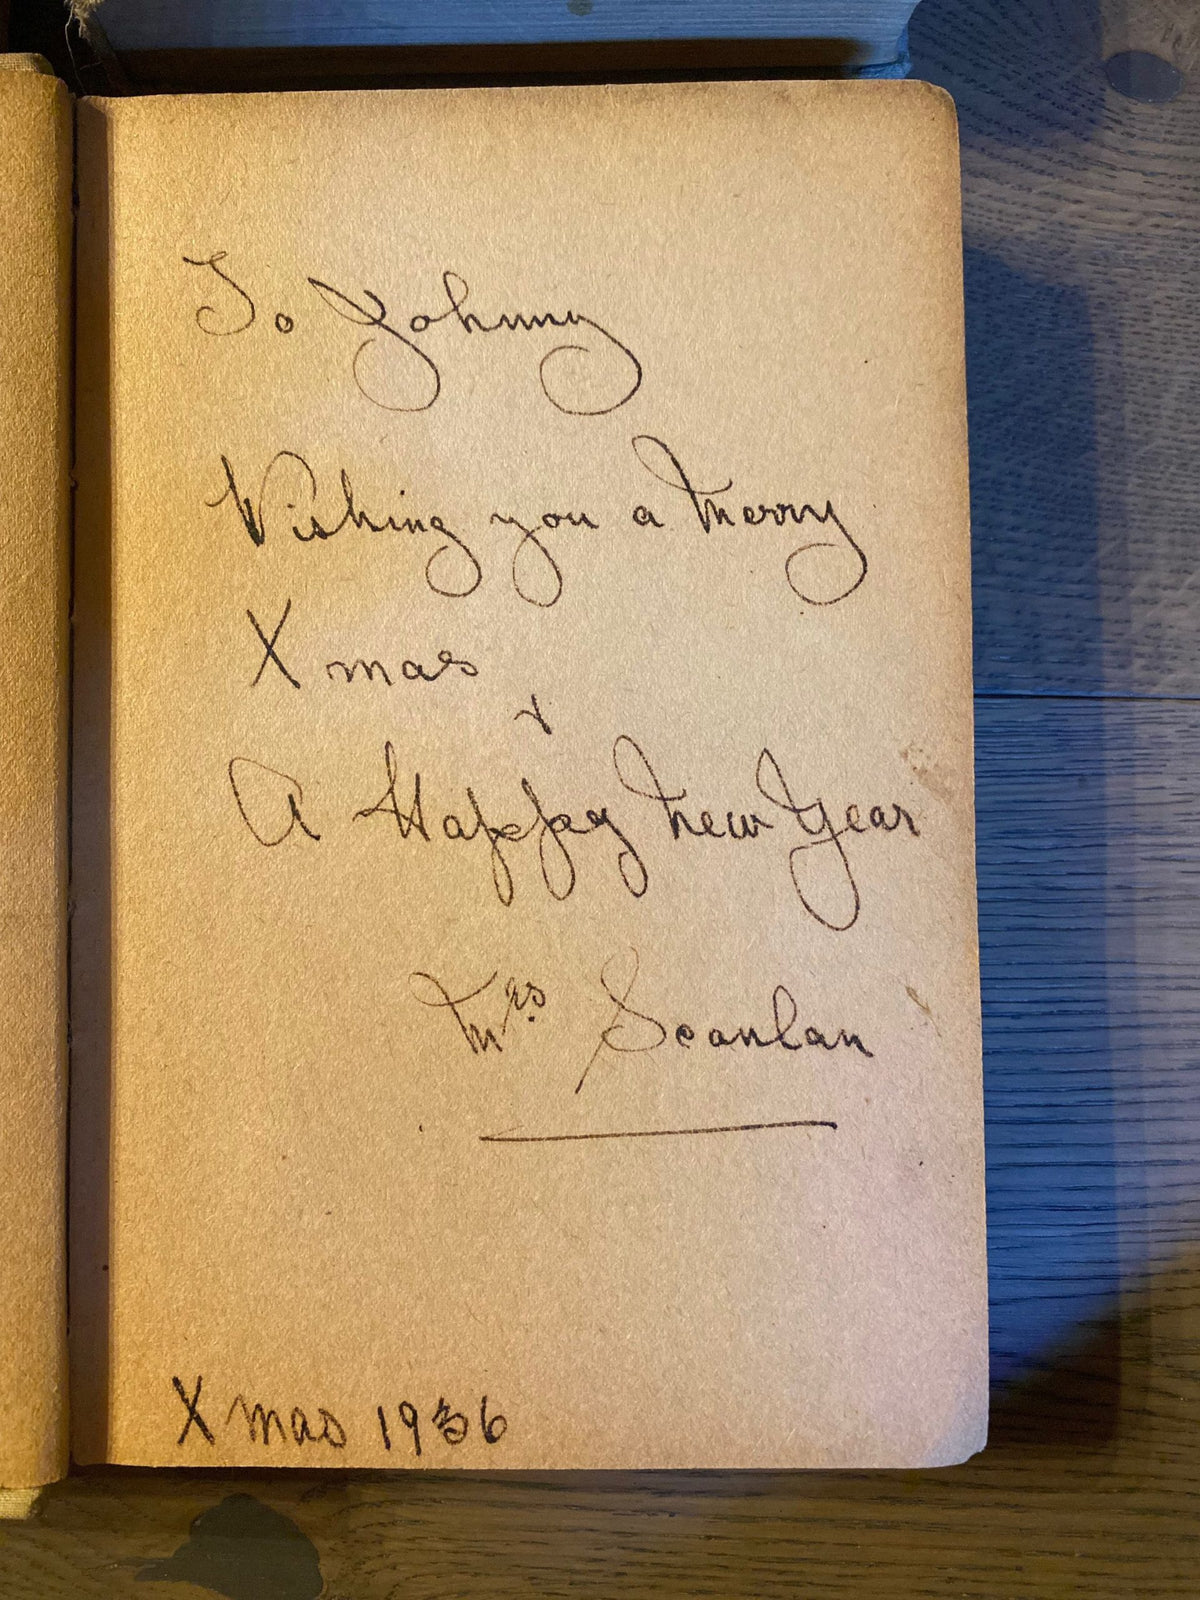 To Johnny
Wishing you a Merry
Xmas
+
A Happy New Year
Mrs. Scanlan
Xmas 1936